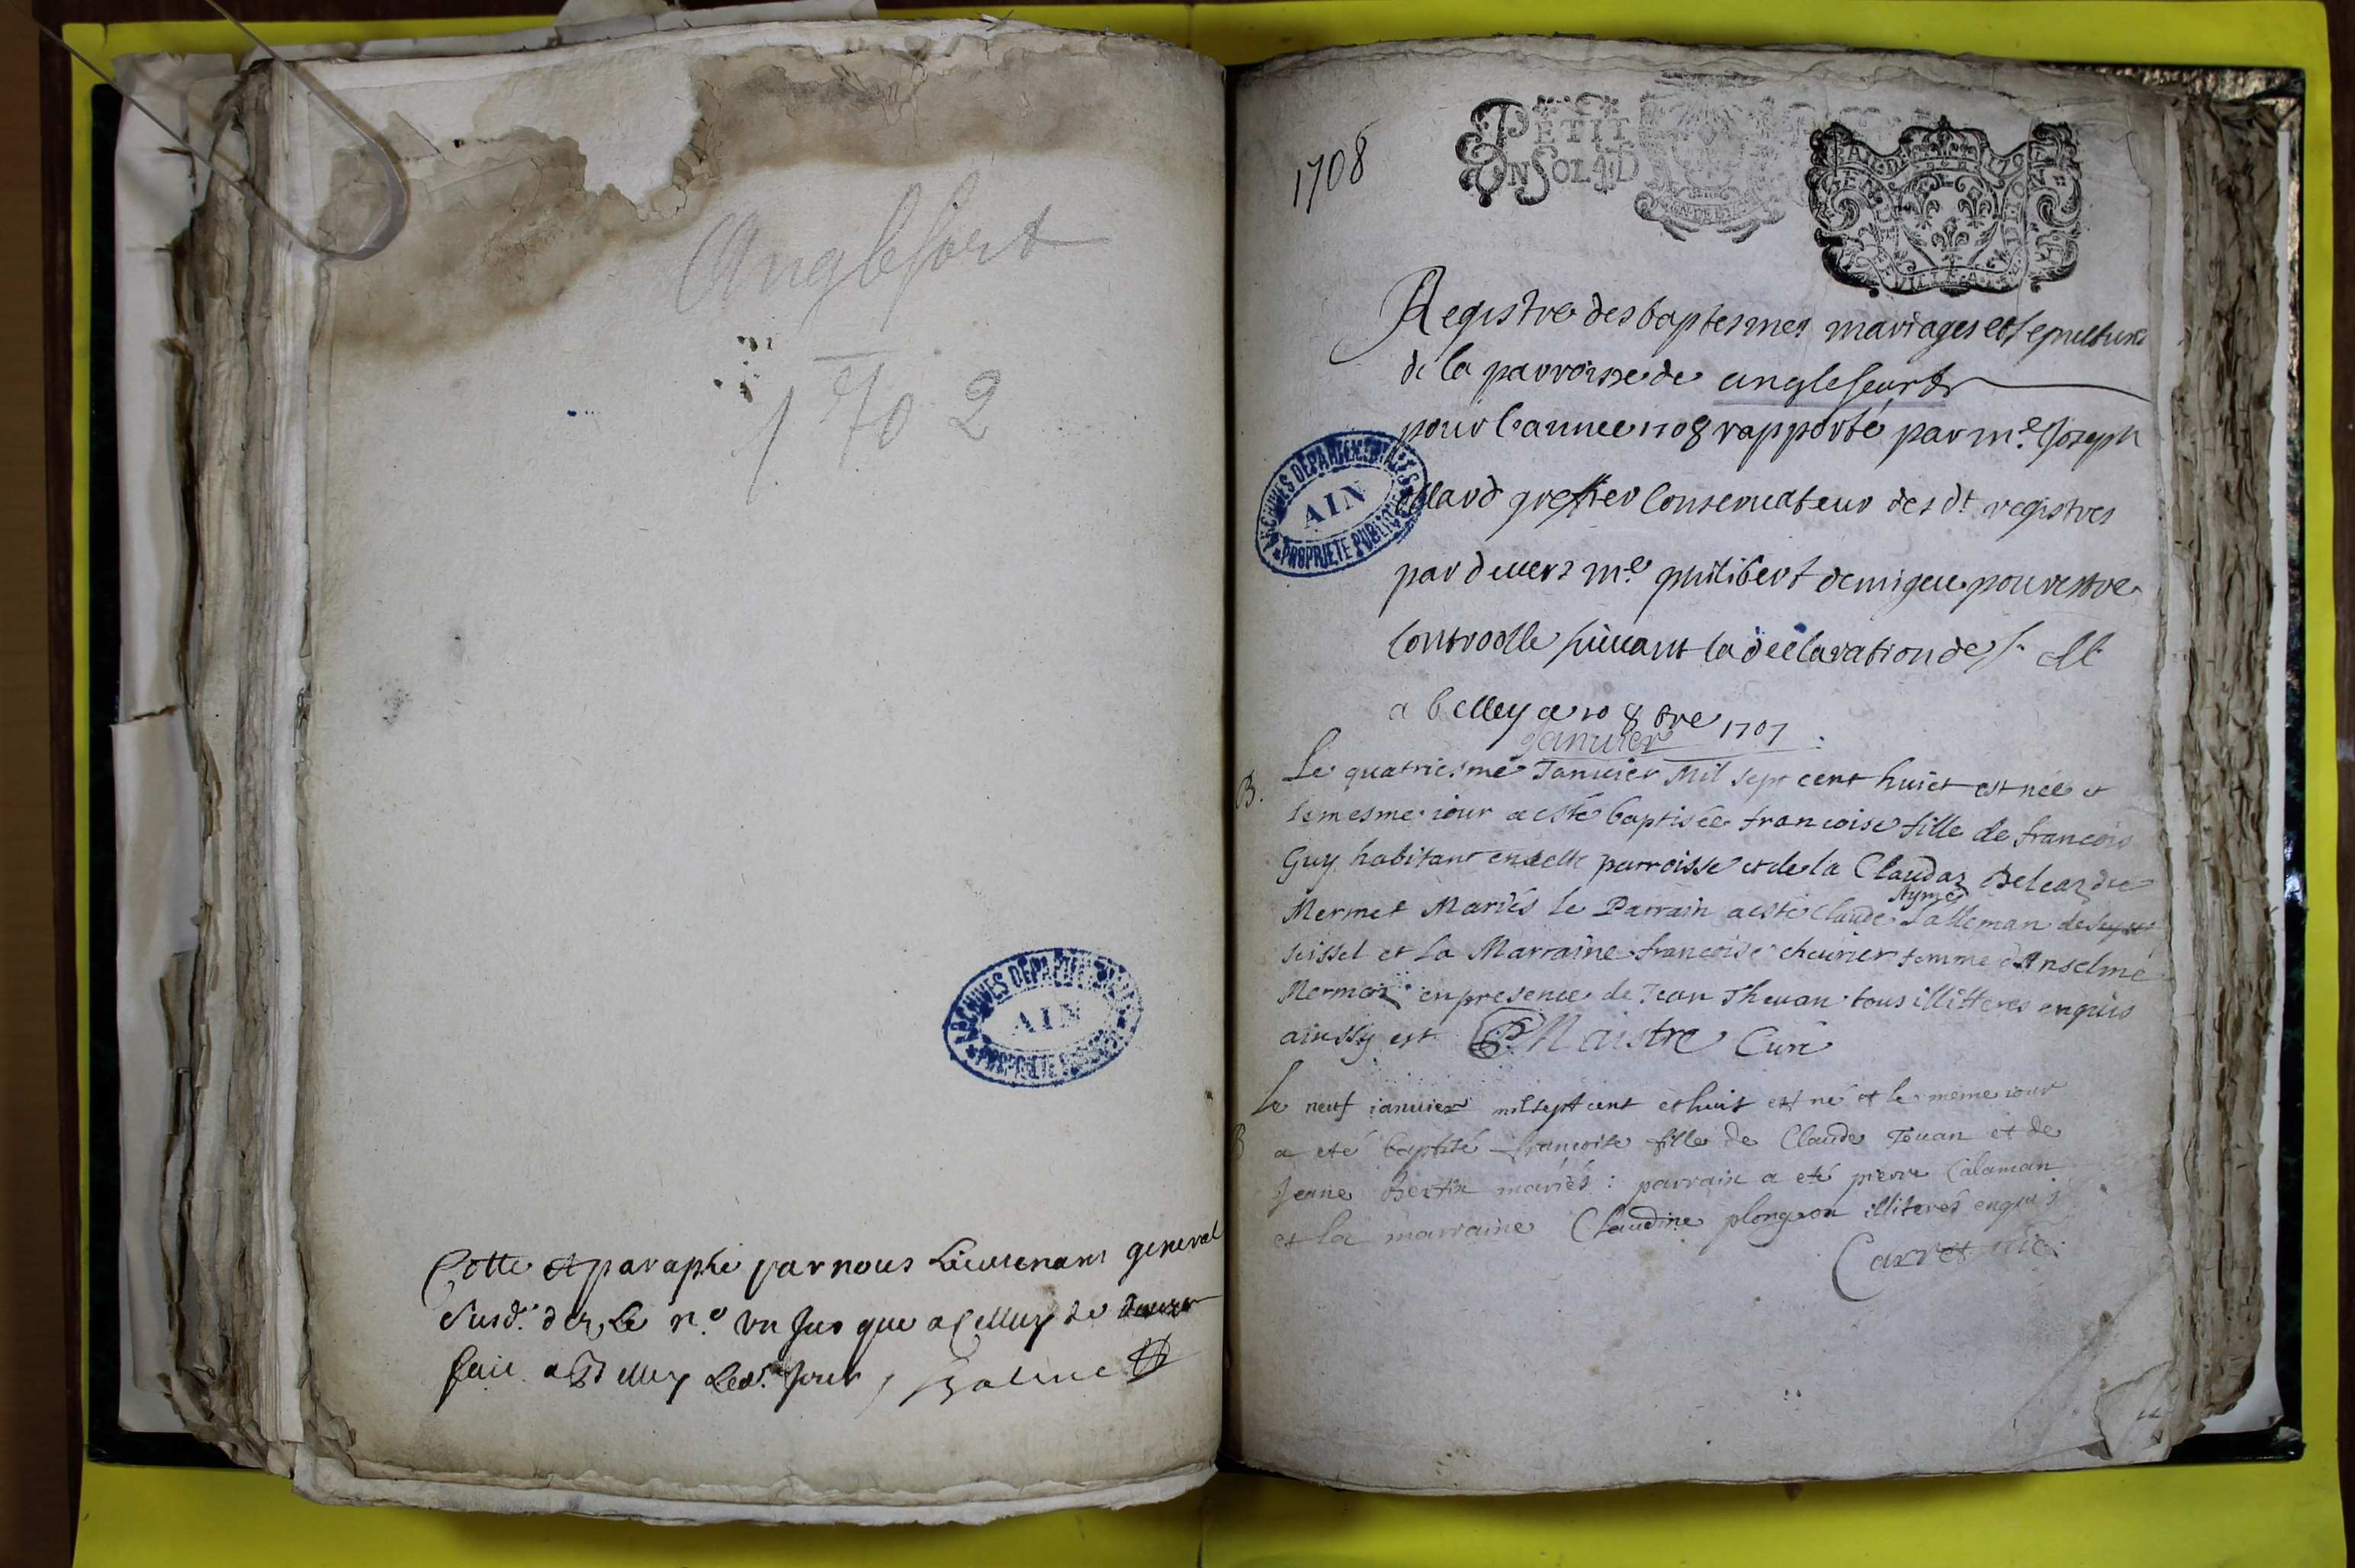 Anglefort
1702
ARCHIVES DEPARTEMENTALES
AIN
PROPRIETE PUBLIQUE
Cotté et paraphé par nous Lieutenant general
Susd. des le n.o un Jus que a Celluy de
fait a Belley Led. Jour
1708
PETIT
EN SOL
Registre des baptesmes mariages et sepultures
de la parroisse de anglefeurt
pour l'annee 1708 rapporté par m.e Joseph
greffier Conservateur des dt registres
par devers m.e philibert demigeu pour estre
Controolle suivant la declaration de S. M
a belley ce 10 8bre 1707
ARCHIVES DEPARTEMENTALES
AIN
PROPRIETE PUBLIQUE
Janvier
B. Le quatriesme Janvier Mil sept cent huict est née et
le mesme iour a esté baptisée francoise fille de francois
Guy habitant en celle parroisse et de la Claudaz
Aymé
Mermet Mariés le Parrain a esté Claude Lalleman de
seissel et la Marraine francoise chevrier femme d'Anselme
Mermet en presence de Jean Thevan tous illitteres enquis
ainssy est Maistre Curé
Le neuf ianvier mil sept cent et huit est né et le meme iour
B a eté baptisé francoise fille de Claude Tevan et de
Jeane Bertin mariés : parrain a eté pierre Calaman
et la marraine Claudine plongeon illiterés enquis
Carret vic.